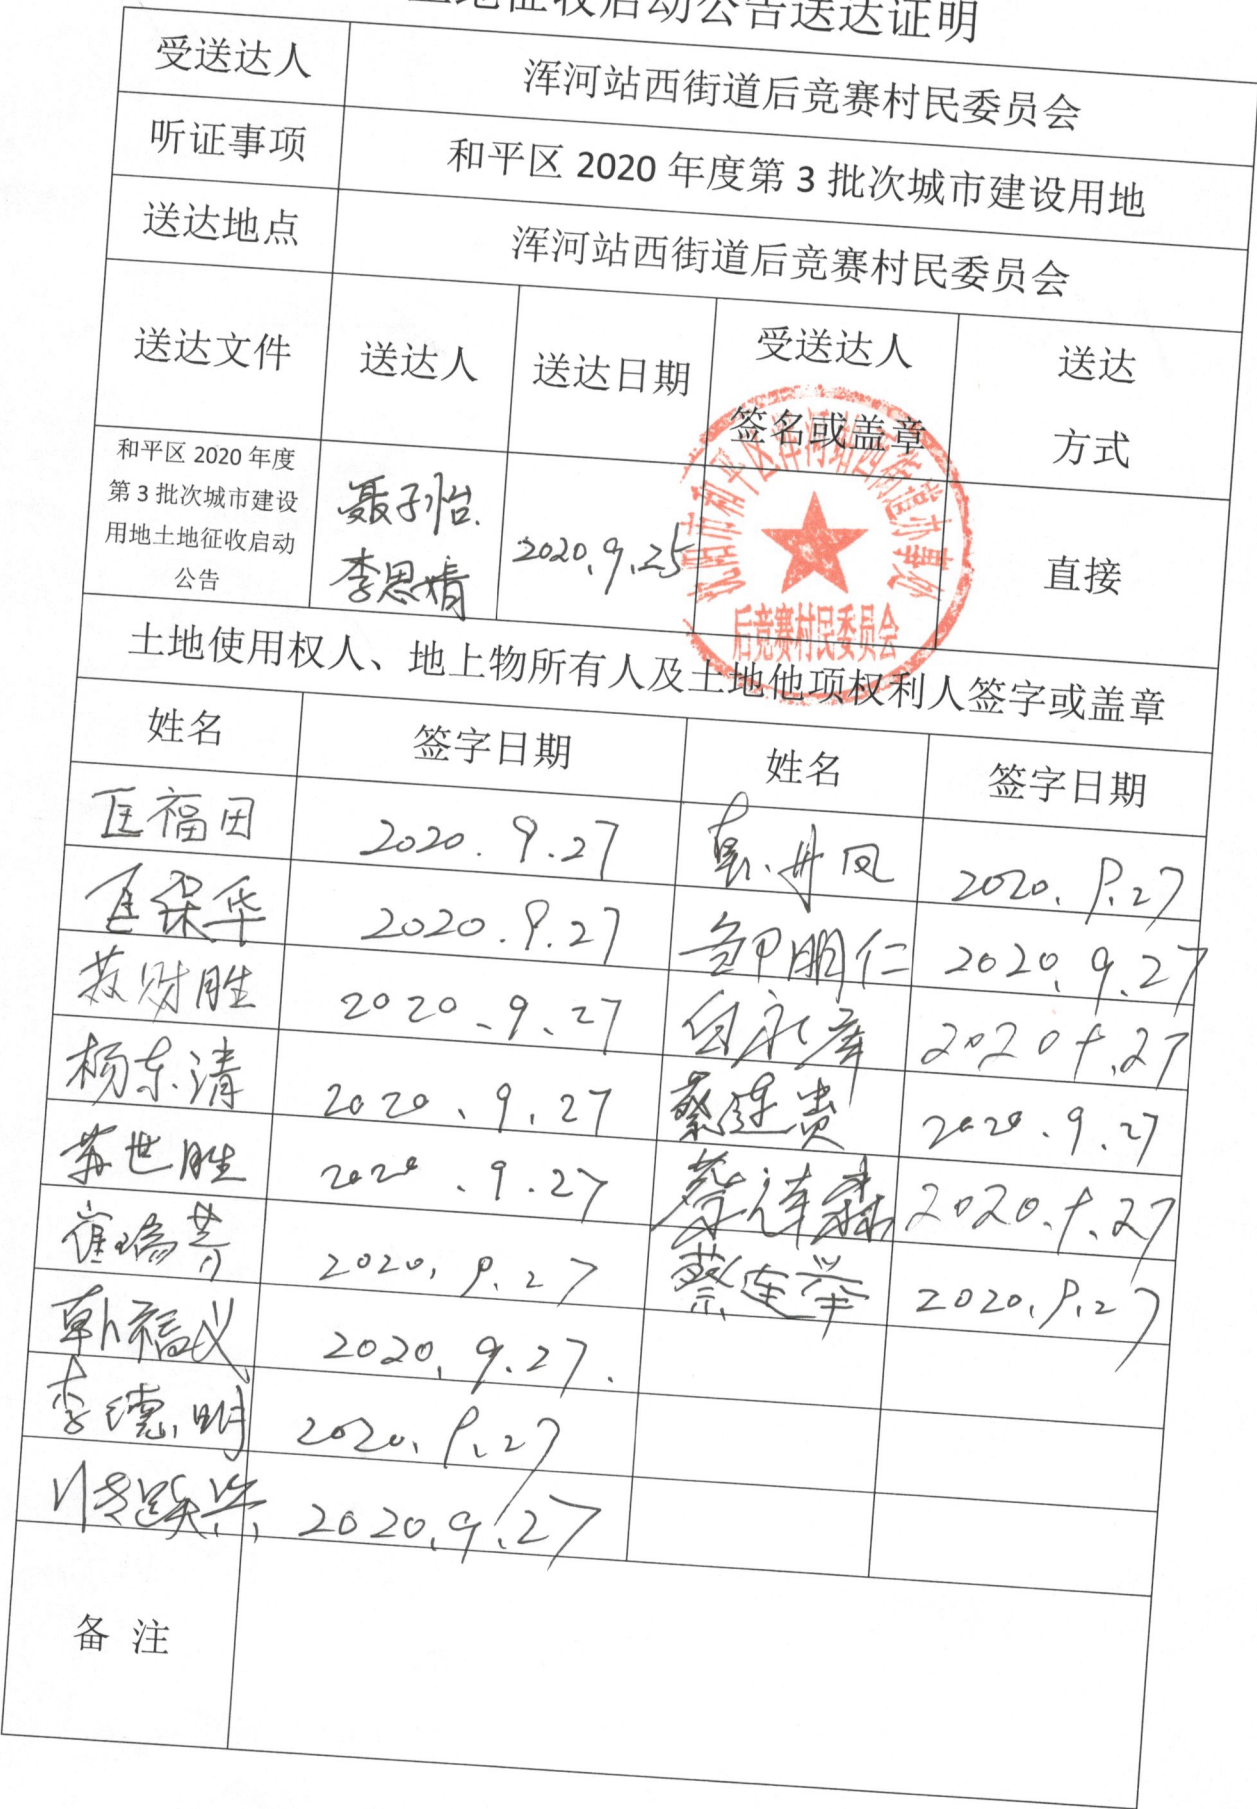 土地征收启动公告送达证明
受送达人 浑河站西街道后竞赛村民委员会
听证事项 和平区 2020 年度第 3 批次城市建设用地
送达地点 浑河站西街道后竞赛村民委员会
送达文件 送达人 送达日期 受送达人 送达
签名或盖章 方式
和平区 2020 年度
第 3 批次城市建设
用地土地征收启动
公告
聂子怡
李思婧
2020.9.25
沈阳市和平区浑河站西街道办事处
后竞赛村民委员会
直接
土地使用权人、地上物所有人及土地他项权利人签字或盖章
姓名 签字日期 姓名 签字日期
匡福田 2020.9.27 丹凤 2020.9.27
匡保华 2020.9.27 明仁 2020.9.27
财胜 2020.9.27 白永 2020.9.27
杨东清 2020.9.27 蔡连贵 2020.9.27
苏世胜 2020.9.27 蔡连森 2020.9.27
崔瑞芳 2020.9.27 蔡连举 2020.9.27
福义 2020.9.27.
李德明 2020.9.27
2020.9.27
备 注